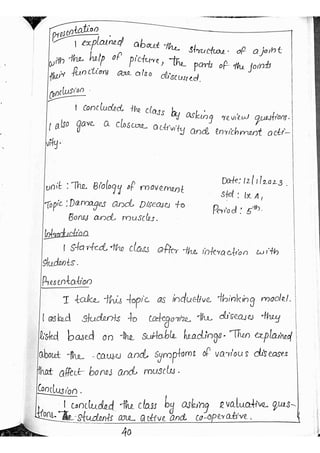 Presentation.
I explained about the structure of a joint
with the help of picture, the parts of the joints
their functions are also discussed.
Conclusion.
I concluded the class by asking review questions.
I also gave a closure activity and enrichment acti-
vity.
Date: 12/1/2023.
unit : The Biology of movement
Std : IX A,
Topic : Damages and Diseases to
Period : 5th.
Bones and muscles.
Introduction
I started the class after the interaction with
students.
Presentation
I take this topic as inductive thinking model.
I asked students to categorise the diseases they
listed based on the suitable headings. Then explained
about the causes and symptoms of various diseases
that affect bones and muscles.
Conclusion.
I concluded the class by asking evaluative ques-
tions. The students are active and co-operative.
40